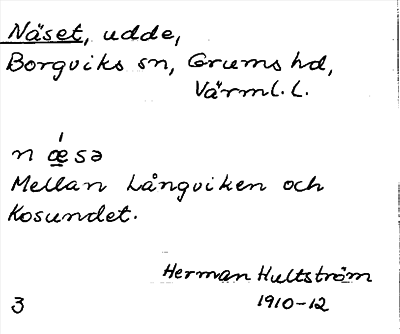 Näset, udde,
Borgviks sn, Grums hd,
Värml. L.
n ǽ̱sə
Mellan Långviken och
Kosundet.
Herman Hultström
1910-12
3